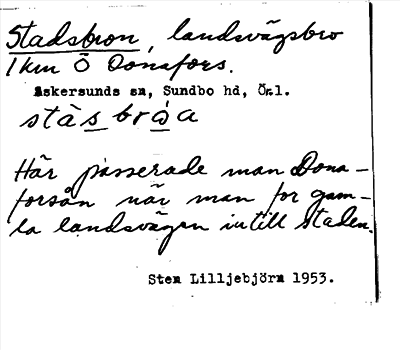 Stadsbron, landsvägsbro
1 km Ö Donafors.
Askersunds sn, Sundbo hd, Örl.
stàsbróa
Här passerade man Dona-
forsån när man for gam-
la landsvägen in till staden.
Sten Lilljebjörn 1953.